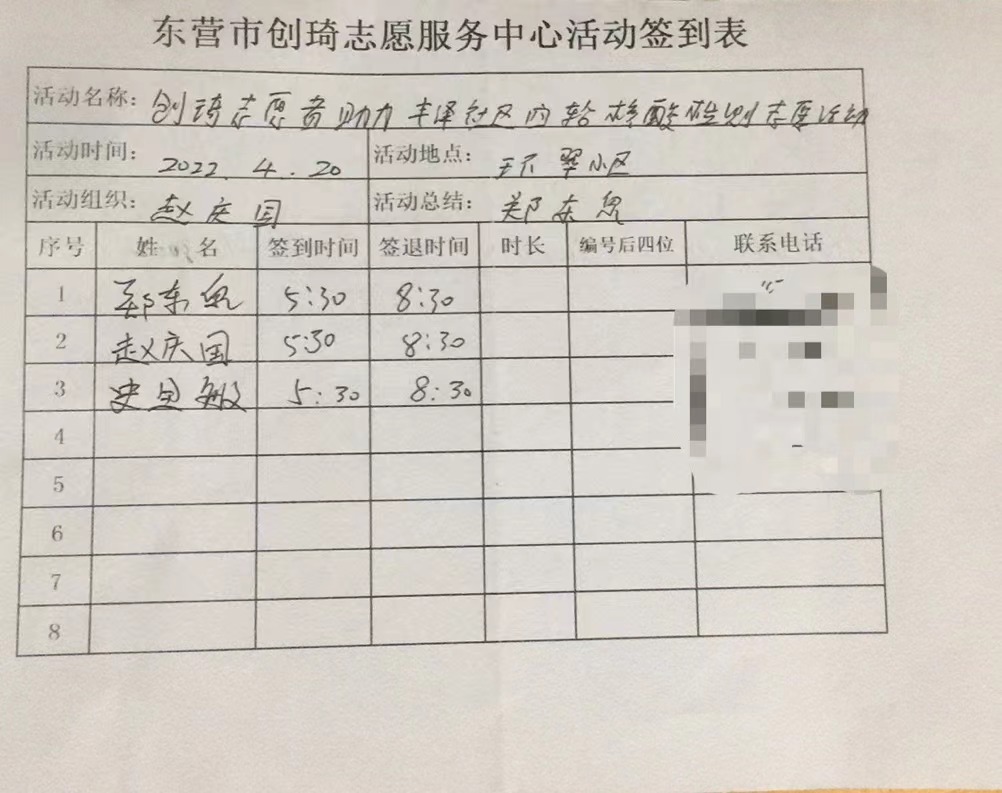 东营市创琦志愿服务中心活动签到表
活动名称：创琦志愿者助力丰泽社区内轮核酸检测志愿活动
活动时间：2022.4.20 活动地点：环翠小区
活动组织：赵庆国 活动总结：郑东
序号 姓名 签到时间 签退时间 时长 编号后四位 联系电话
1 郑东 5:30 8:30
2 赵庆国 5:30 8:30
3 史 敏 5:30 8:30
4
5
6
7
8